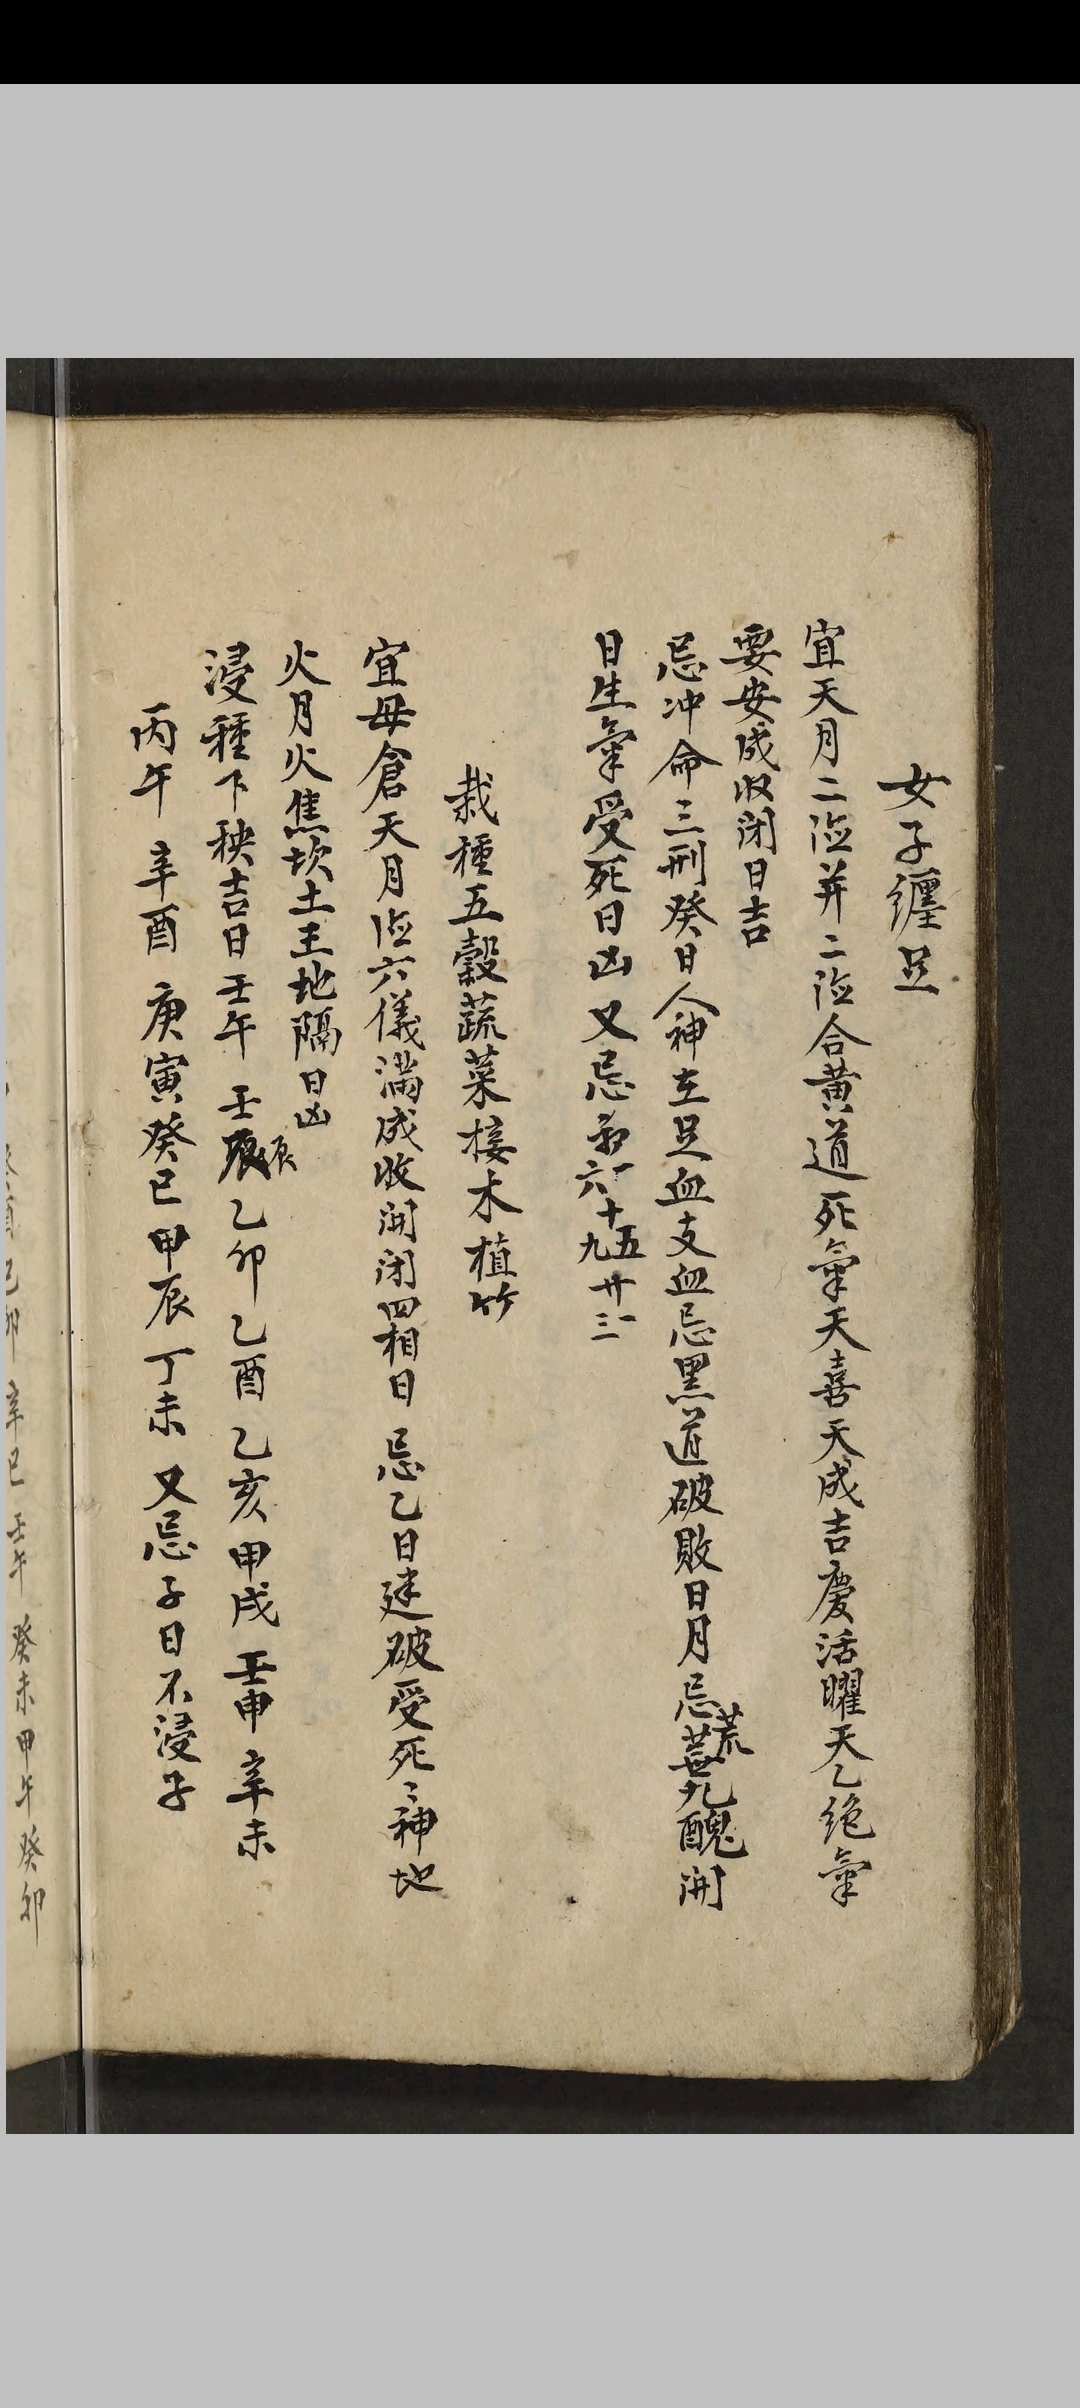 女子纏足
宜天月二德并二德合黄道死氣天喜天成吉慶活曜天乙絶氣
要安成收闭日吉
忌冲命三刑癸日人神在足血支血忌黑道破敗日月忌荒蕪九醜開
日生氣受死日凶又忌初一六十五九廿一三
栽種五穀蔬菜接木植竹
宜母倉天月德六儀滿成收開闭四相日忌乙日建破受死〻神地
火月火焦坎土王地隔日凶
浸種下秧吉日壬午壬辰辰乙卯乙酉乙亥甲戌壬申辛未
丙午辛酉庚寅癸巳甲辰丁未又忌子日不浸子
辛巳壬午癸未甲午癸卯